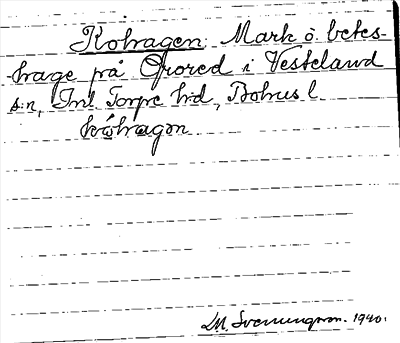 Kohagen: Mark o. betes-
hage på Grored i Vesteland
s:n, Inl. Torpe hd, Bohus l
kóhagən
M. Svenungson. 1940.